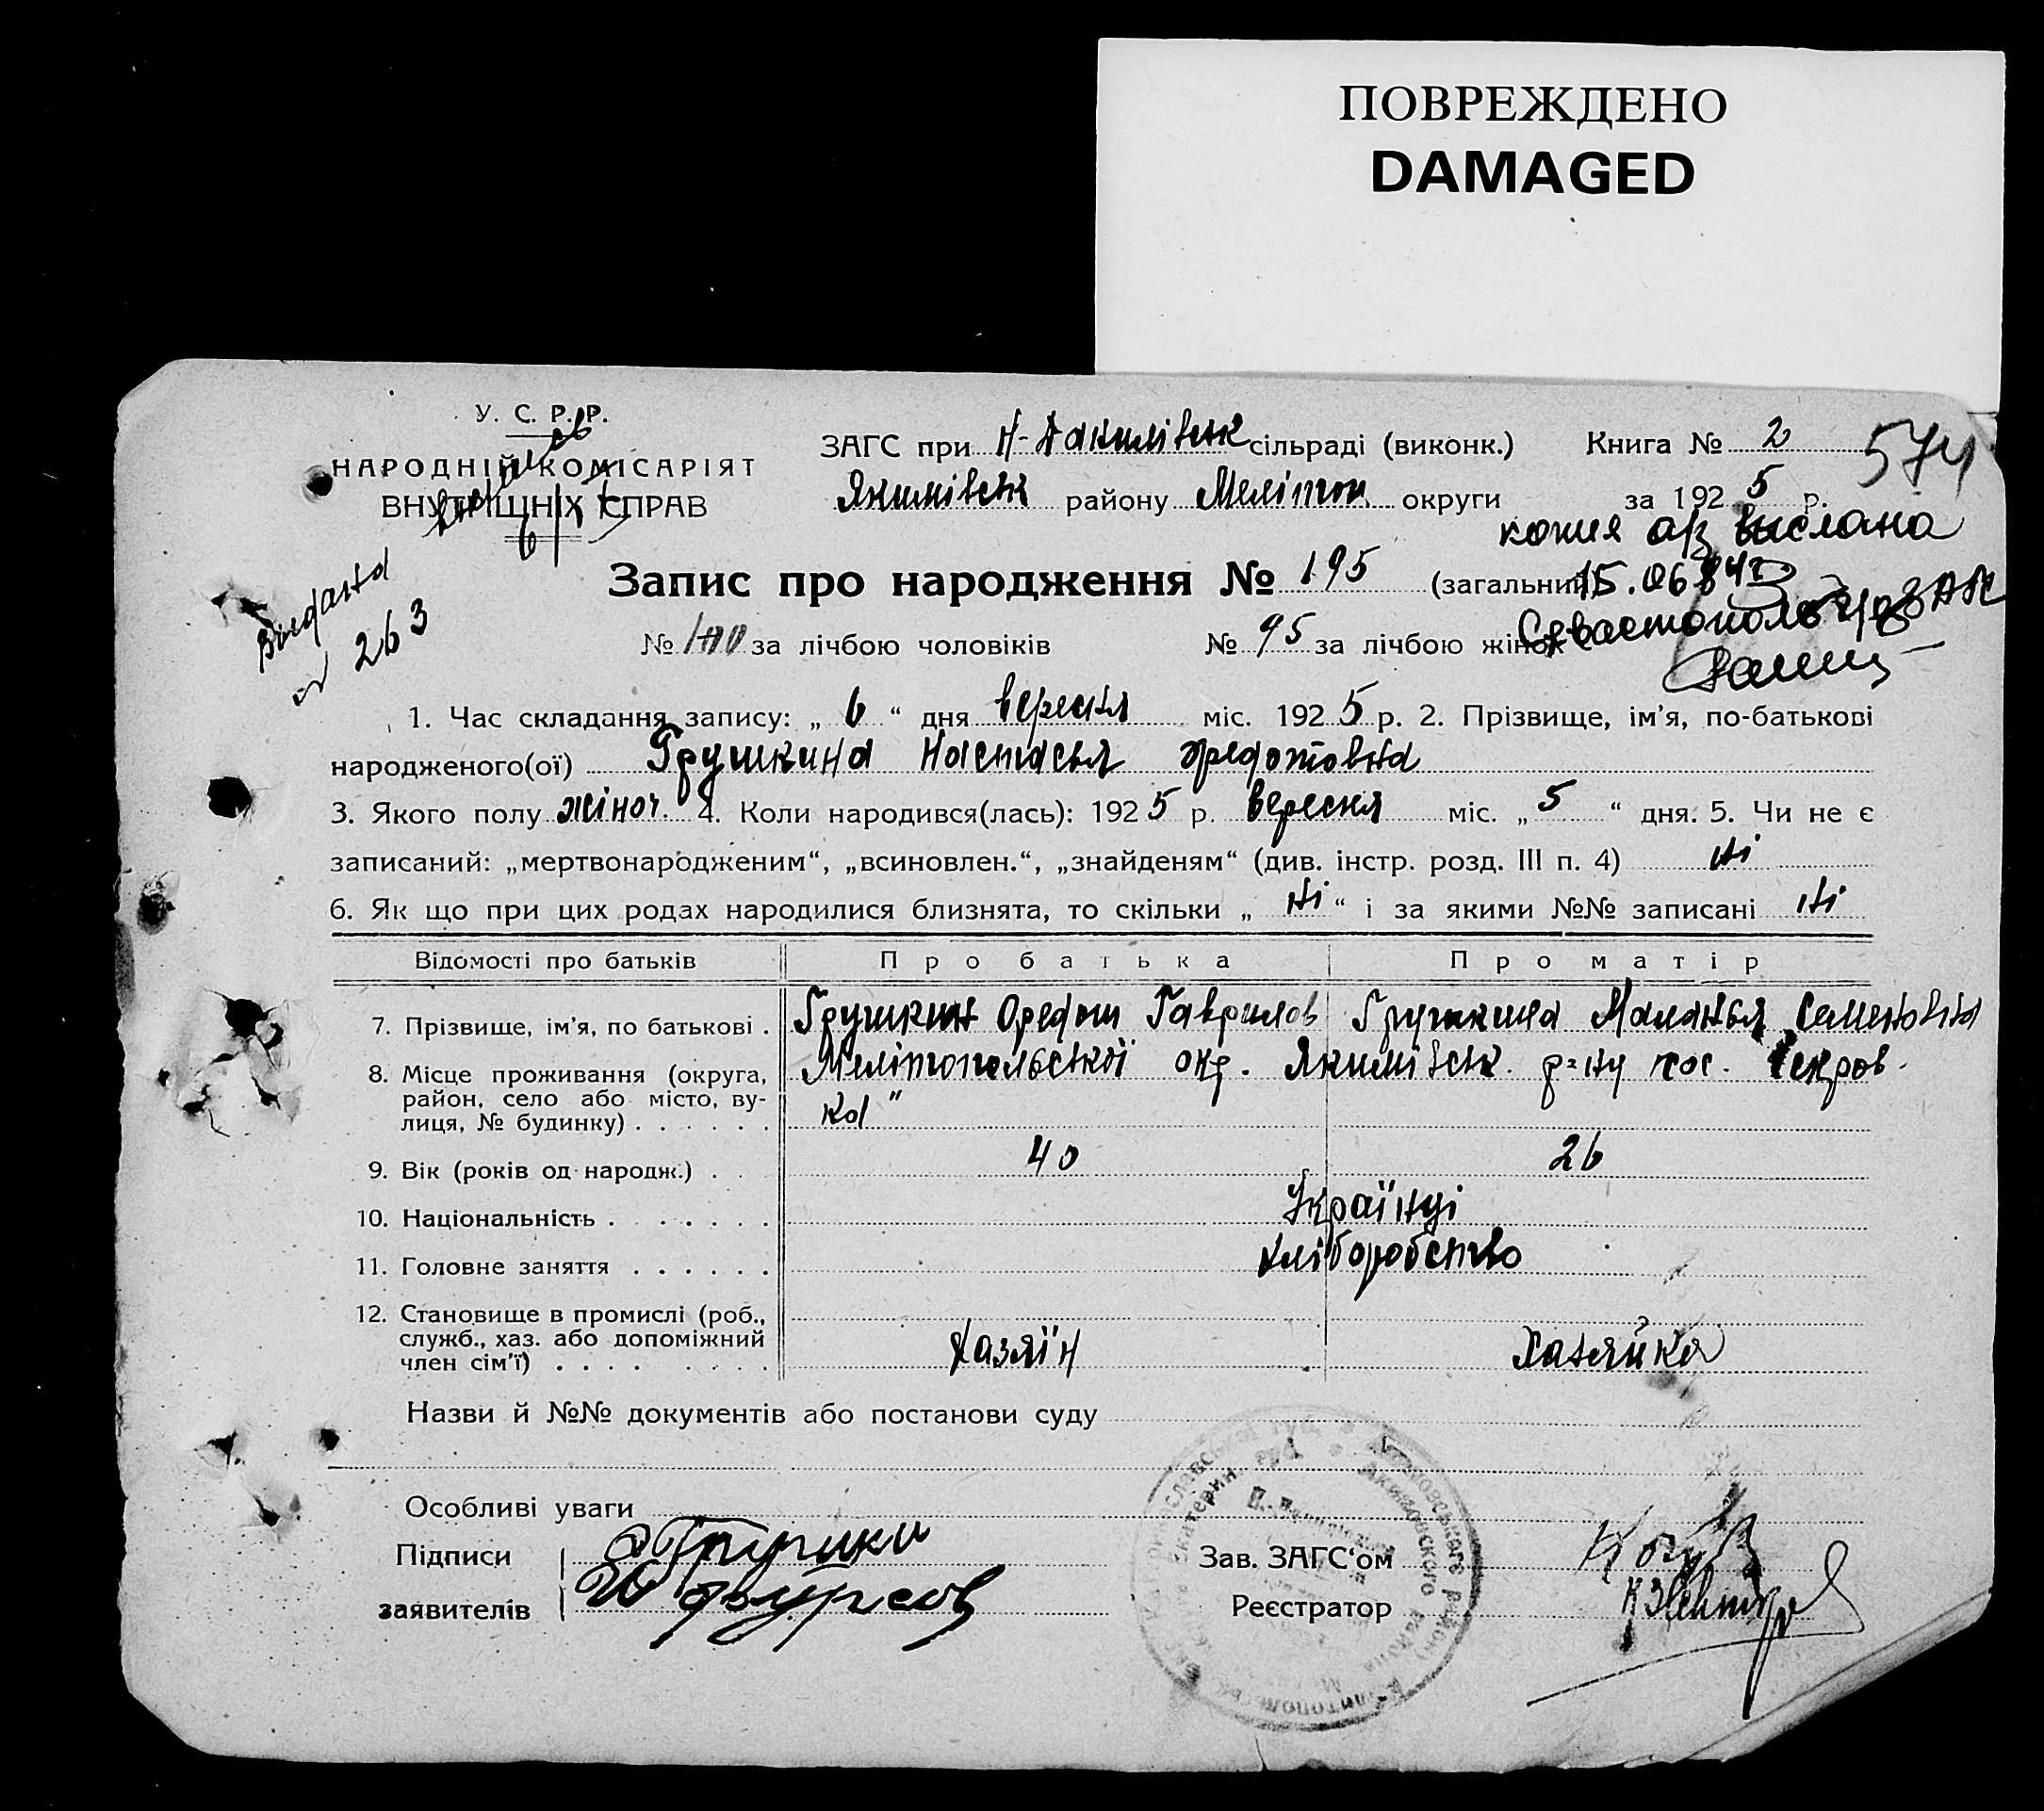 ПОВРЕЖДЕНО
DAMAGED
У. С. Р. Р.
НАРОДНІЙ КОМІСАРІЯТ
ВНУТРІШНІХ СПРАВ
ЗАГС при Н-Данилівськ сільраді (виконк.) Книга № 2
574
Якимівськ району Мелітоп. округи за 1925 р.
копия а/з выслана
15.06.84
Запис про народження № 195 (загальний)
Севастополь
Видана
263
№ за лічбою чоловіків № 95 за лічбою жінок
1. Час складання запису: „ 6 “ дня вересня міс. 1925 р. 2. Прізвище, ім’я, по-батькові
народженого(ої) Грушкина Настасья Федотовна
3. Якого полу жіноч. 4. Коли народився(лась): 1925 р. вересня міс. „ 5 “ дня. 5. Чи не є
записаний: „мертвонародженим“, „всиновлен.“, „знайденям“ (див. інстр. розд. III п. 4) ні
6. Як що при цих родах народилися близнята, то скільки „ ні “ і за якими №№ записані ні
Відомості про батьків Про батька Про матір
7. Прізвище, ім’я, по батькові . Грушкин Федот Гаврилов Грушкина Маланья Семеновна
8. Місце проживання (округа, Мелітопольської окр. Якимівськ. р-ну
район, село або місто, ву-
лиця, № будинку) . . . . . . ка"
9. Вік (років од народж.) . . 40 26
10. Національність . . . . . . . Українці
11. Головне заняття . . . . . . хліборобство
12. Становище в промислі (роб.,
служб., хаз. або допоміжний
член сім’ї) . . . . . . . . Хазяїн Хазяйка
Назви й №№ документів або постанови суду
Особливі уваги
Підписи Зав. ЗАГС‘ом
заявителів Реєстратор